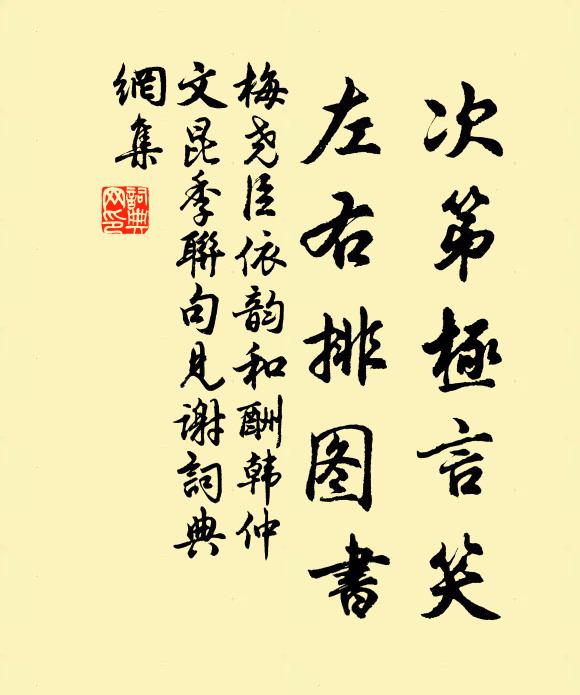 次第極言笑
左右排图書
梅尧臣依韵和酬韩仲
文昆季聯句見谢詞典
網集
詞典网印